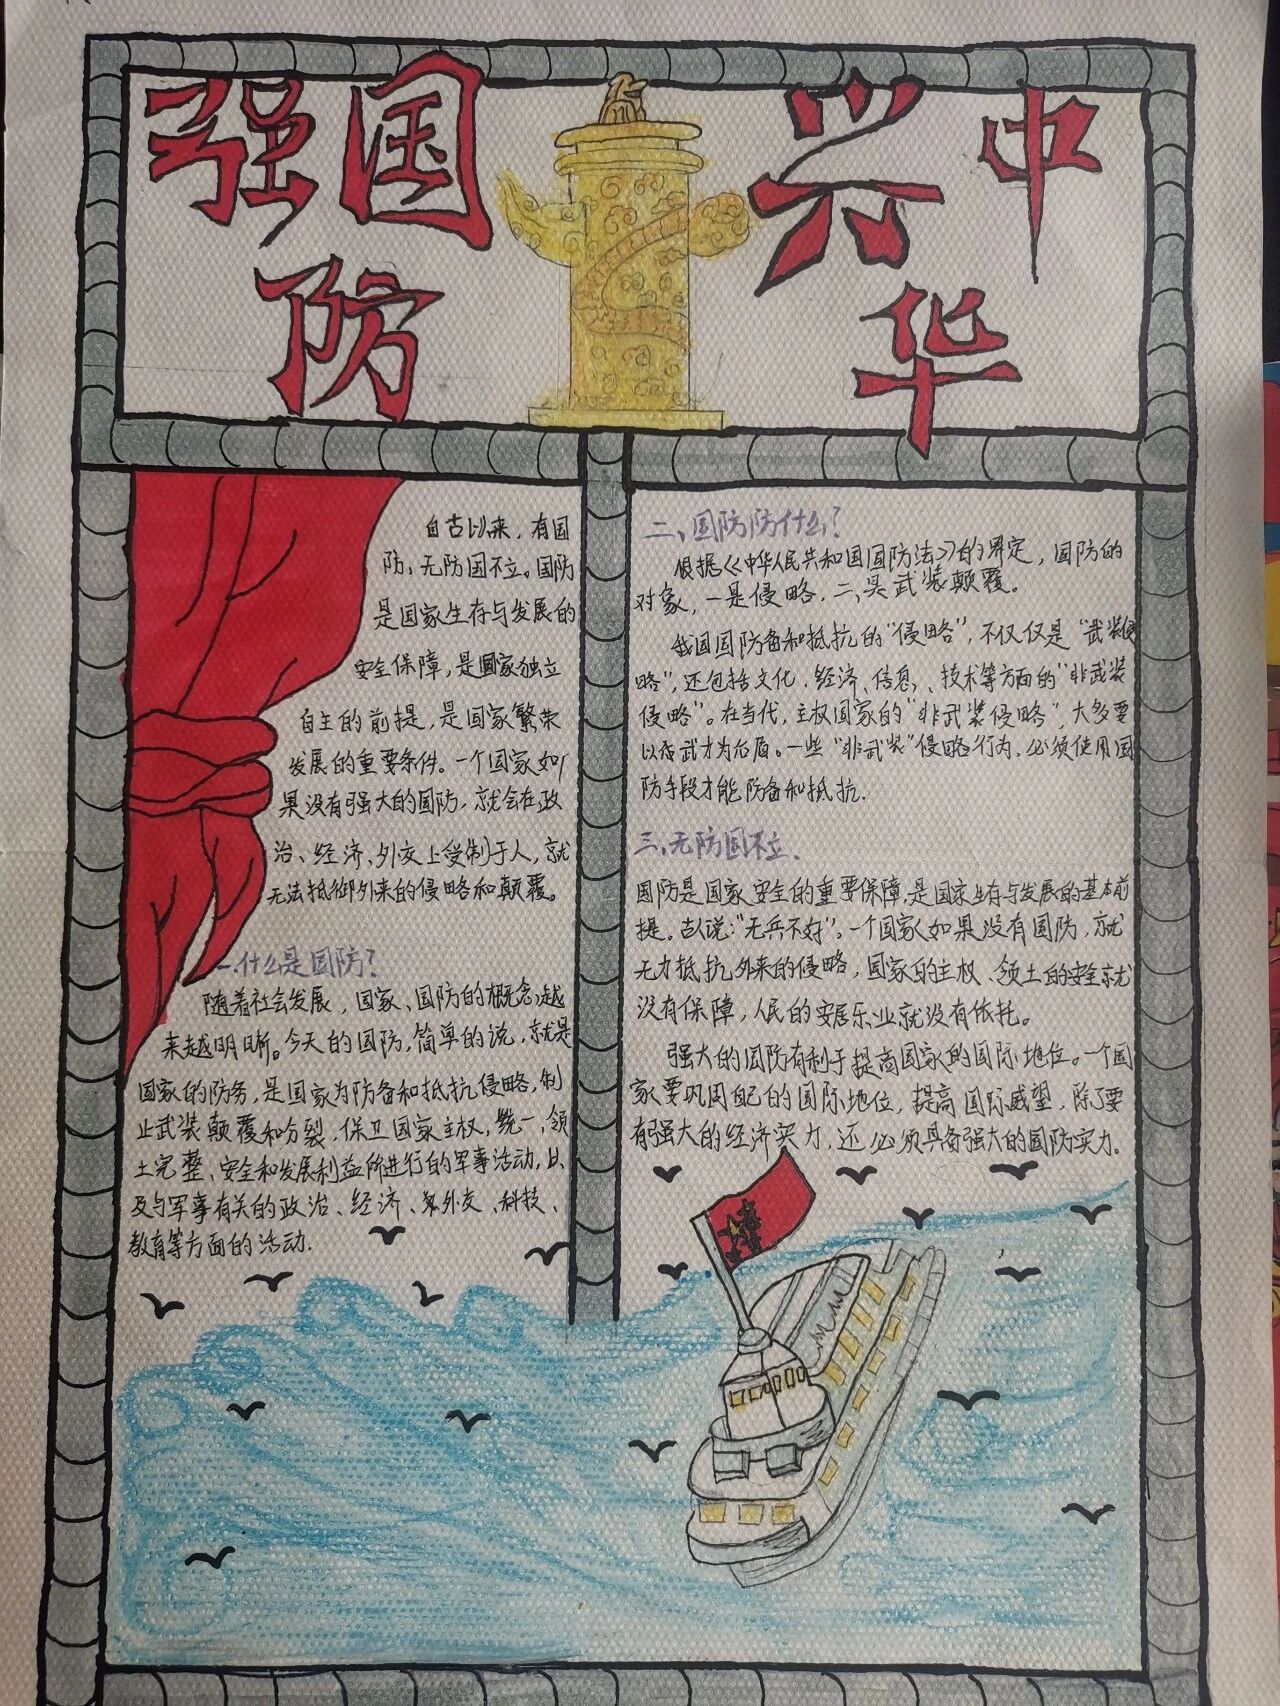 强国防
兴中华
自古以来，有国
防，无防国不立。国防
是国家生存与发展的
安全保障，是国家独立
自主的前提，是国家繁荣
发展的重要条件。一个国家如
果没有强大的国防，就会在政
治、经济、外交上受制于人，就
无法抵御外来的侵略和颠覆。
一.什么是国防？
随着社会发展，国家、国防的概念越
来越明晰。今天的国防，简单的说，就是
国家的防务，是国家为防备和抵抗侵略，制
止武装颠覆和分裂，保卫国家主权，统一，领
土完整、安全和发展利益所进行的军事活动，以
及与军事有关的政治、经济、外交、科技、
教育等方面的活动.
二、国防防什么？
根据《中华人民共和国国防法》的界定，国防的
对象，一是侵略，二、是武装颠覆。
我国国防备和抵抗的“侵略”，不仅仅是“武装侵
略”，还包括文化、经济、信息、技术等方面的“非武装
侵略”。在当代，主权国家的“非武装侵略”，大多要
以武力为后盾。一些“非武装”侵略行为，必须使用国
防手段才能防备和抵抗.
三、无防国不立.
国防是国家安全的重要保障，是国家生存与发展的基本前
提。古人说：“无兵不好”。一个国家如果没有国防，就
无力抵抗外来的侵略，国家的主权、领土的安全就
没有保障，人民的安居乐业就没有依托。
强大的国防有利于提高国家的国际地位。一个国
家要巩固自己的国际地位，提高国际威望，除了要
有强大的经济实力，还必须具备强大的国防实力.